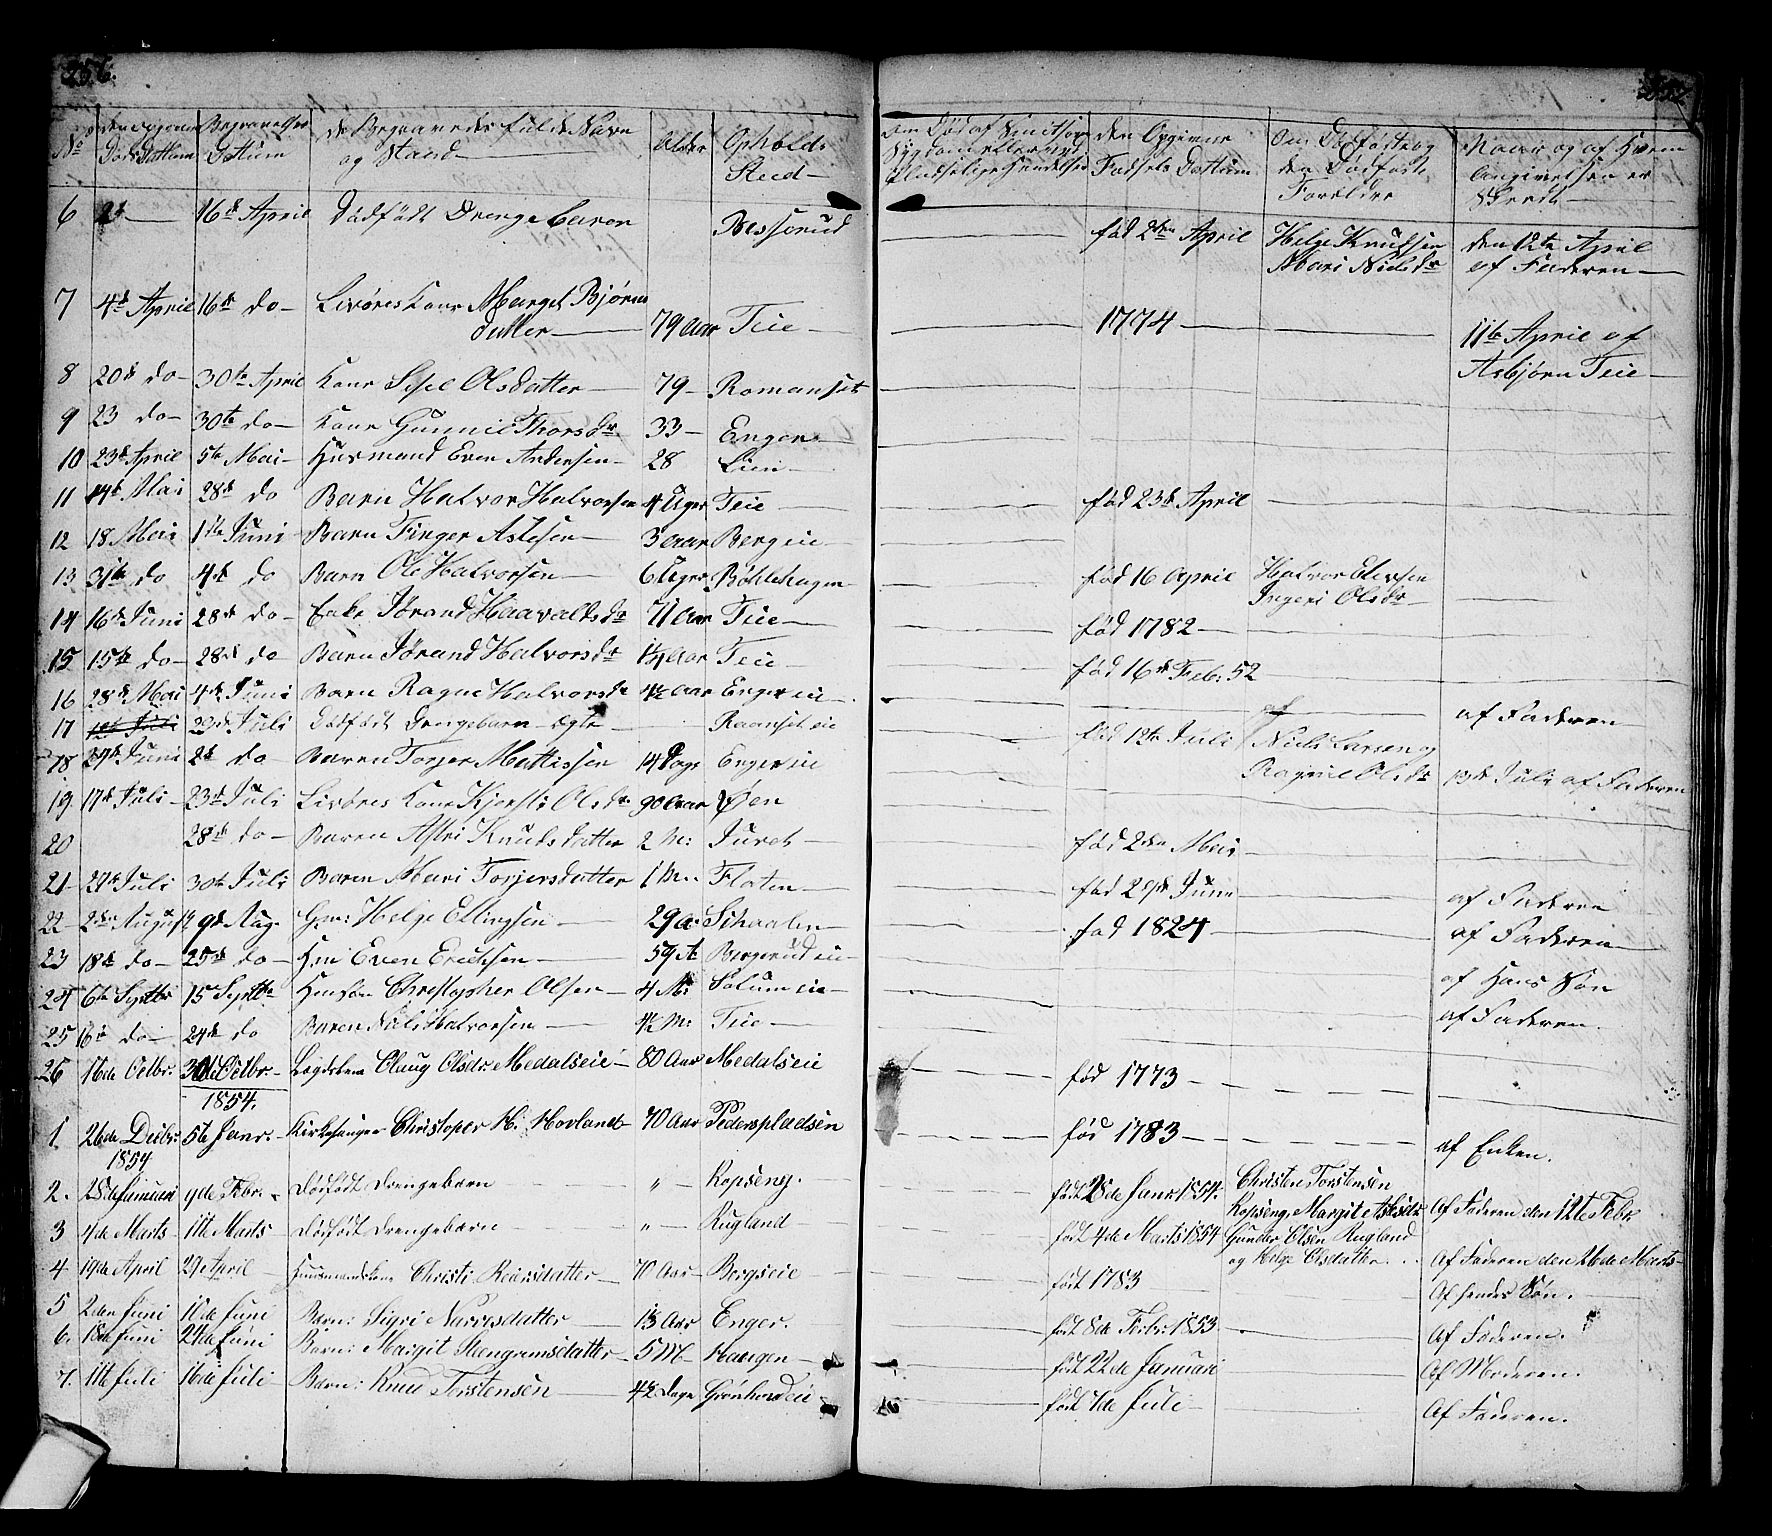 256.
No den opgivne Døds Dattum Begravelses Dattum de Begravedes fulde Navn og Stand Alder Opholds Sted
6 2d 16d April Dødfødt Drenge Baren Bessерud
7 4d April 16d do Livøres Kone Margit Bjørns datter 79 Aar Teie
8 20d do 30te April Kone Sisel Olsdatter 79 Romanset
9 23 do 30te do Kone Gunnil Thorsdr 33 Enger
10 23d April 5te Mai Husmand Even Andersen 28 Lien
11 14d Mai 28d do Barn Halvor Halvorsen 4 Uger Teie
12 18 Mai 1ste Juni Barn Finger Aslesen 3 aar Bergeie
13 31te do 4d do Barn Ole Halvorsen 6 Uger Bøhlehagen
14 16d Juni 28d do Enke Jørand Haavaldsdr 71 Aar Teie
15 15de do 28d do Barn Jørand Halvorsdr 1¼ Aar Teie
16 28d Mai 4d Juni Barn Ragne Halvorsdr 4½ Aar Engereie
17 12d Juli 23d Juli Dødfødt Drengebarn ægte Raanset eie
18 29d Juni 2d do Baren Torger Mattissen 14 Dage Engereie
19 17d Juli 23d Juli Livøres Kone Kjersti Olsdr 90 Aar Øen
20 28d do Baren Astri Knudsdatter 2 M: Juret
21 27d Juli 30te Juli Baren Mari Torjersdatter 1 M. Floten
22 2den August 9d Aug. Gm: Helge Ellingsen 29 a Skaalen
23 18d do 25d do Hm Even Ericksen 59 A Bergerud eie
24 6te Septbr 15 Septbr Christopher Olsen 4 M: Solum eie
25 16d do 24d do Baren Nils Halvorsen 4½ M: Teie
26 16de Octbr. 30te Octbr. Lægdslem Olaug Olsdr. Medalseie 80 Aar Medalseie
1854.
1. 26de Decbr. 5te Janr. Kirkesanger Christoper H. Hovland 70 Aar Pederspladsen
1854
2. 25de Januari 9de Febr. Dødfødt Drengebarn " Kopseng.
3 4de Marts 11te Marts Dødfødt Drengebarn " Rugland
4 19de April 29 April Huusmandskone Christi Reiarsdatter 70 Aar Bergseie
5 2den Juni 10de Juni Barn: Sigri Narvesdatter 1⅓ Aar Enger.
6. 18de Juni 24de Juni Barn: Margit Stengrimsdatter 5 M Haugen
7. 11te Juli 16de Juli Barn: Knud Torstensen 4½ Dage Grønhovdeie
257
Om Død af Smitsom Sygdom eller ved Uludselige Hendelser den Opgivne Fødsels Dattum Om Dødfødt og den Dødfødte Forældre Naar og af Hvem Angivelsen er Skeedt
fød 2den April Helge Knudsen Mari Nielsdr den 12te April af Faderen
1774 11te April af Asbjørn Teie
fød 23d April
fød 16 April Halvor Elevsen Ingeri Olsdr
fød 1782
fød 16d Feb. 52
fød 12te Juli af Niels Larsen og Ragnil Olsdr af Faderen
13d Juli af Faderen
fød 2den Mai
fød 29d Juni af Faderen
fød 1824 af Faderen
af Hans Søn
af Faderen.
fød 1773
fød 1783 af Enken.
født 28de Janr. 1854. Christen Torstensen Kopseng, Margit Aslesdr. Af Faderen den 12te Febr.
født 4de Marts 1854 Gunder Olsen Rugland og Helge Olsdatter Af Faderen den 26de Marts
født 1783 Af hendes Søn.
født 8de Febr: 1853 Af Faderen.
født 22de Januari Af Moderen.
født 7de Juli Af Faderen.